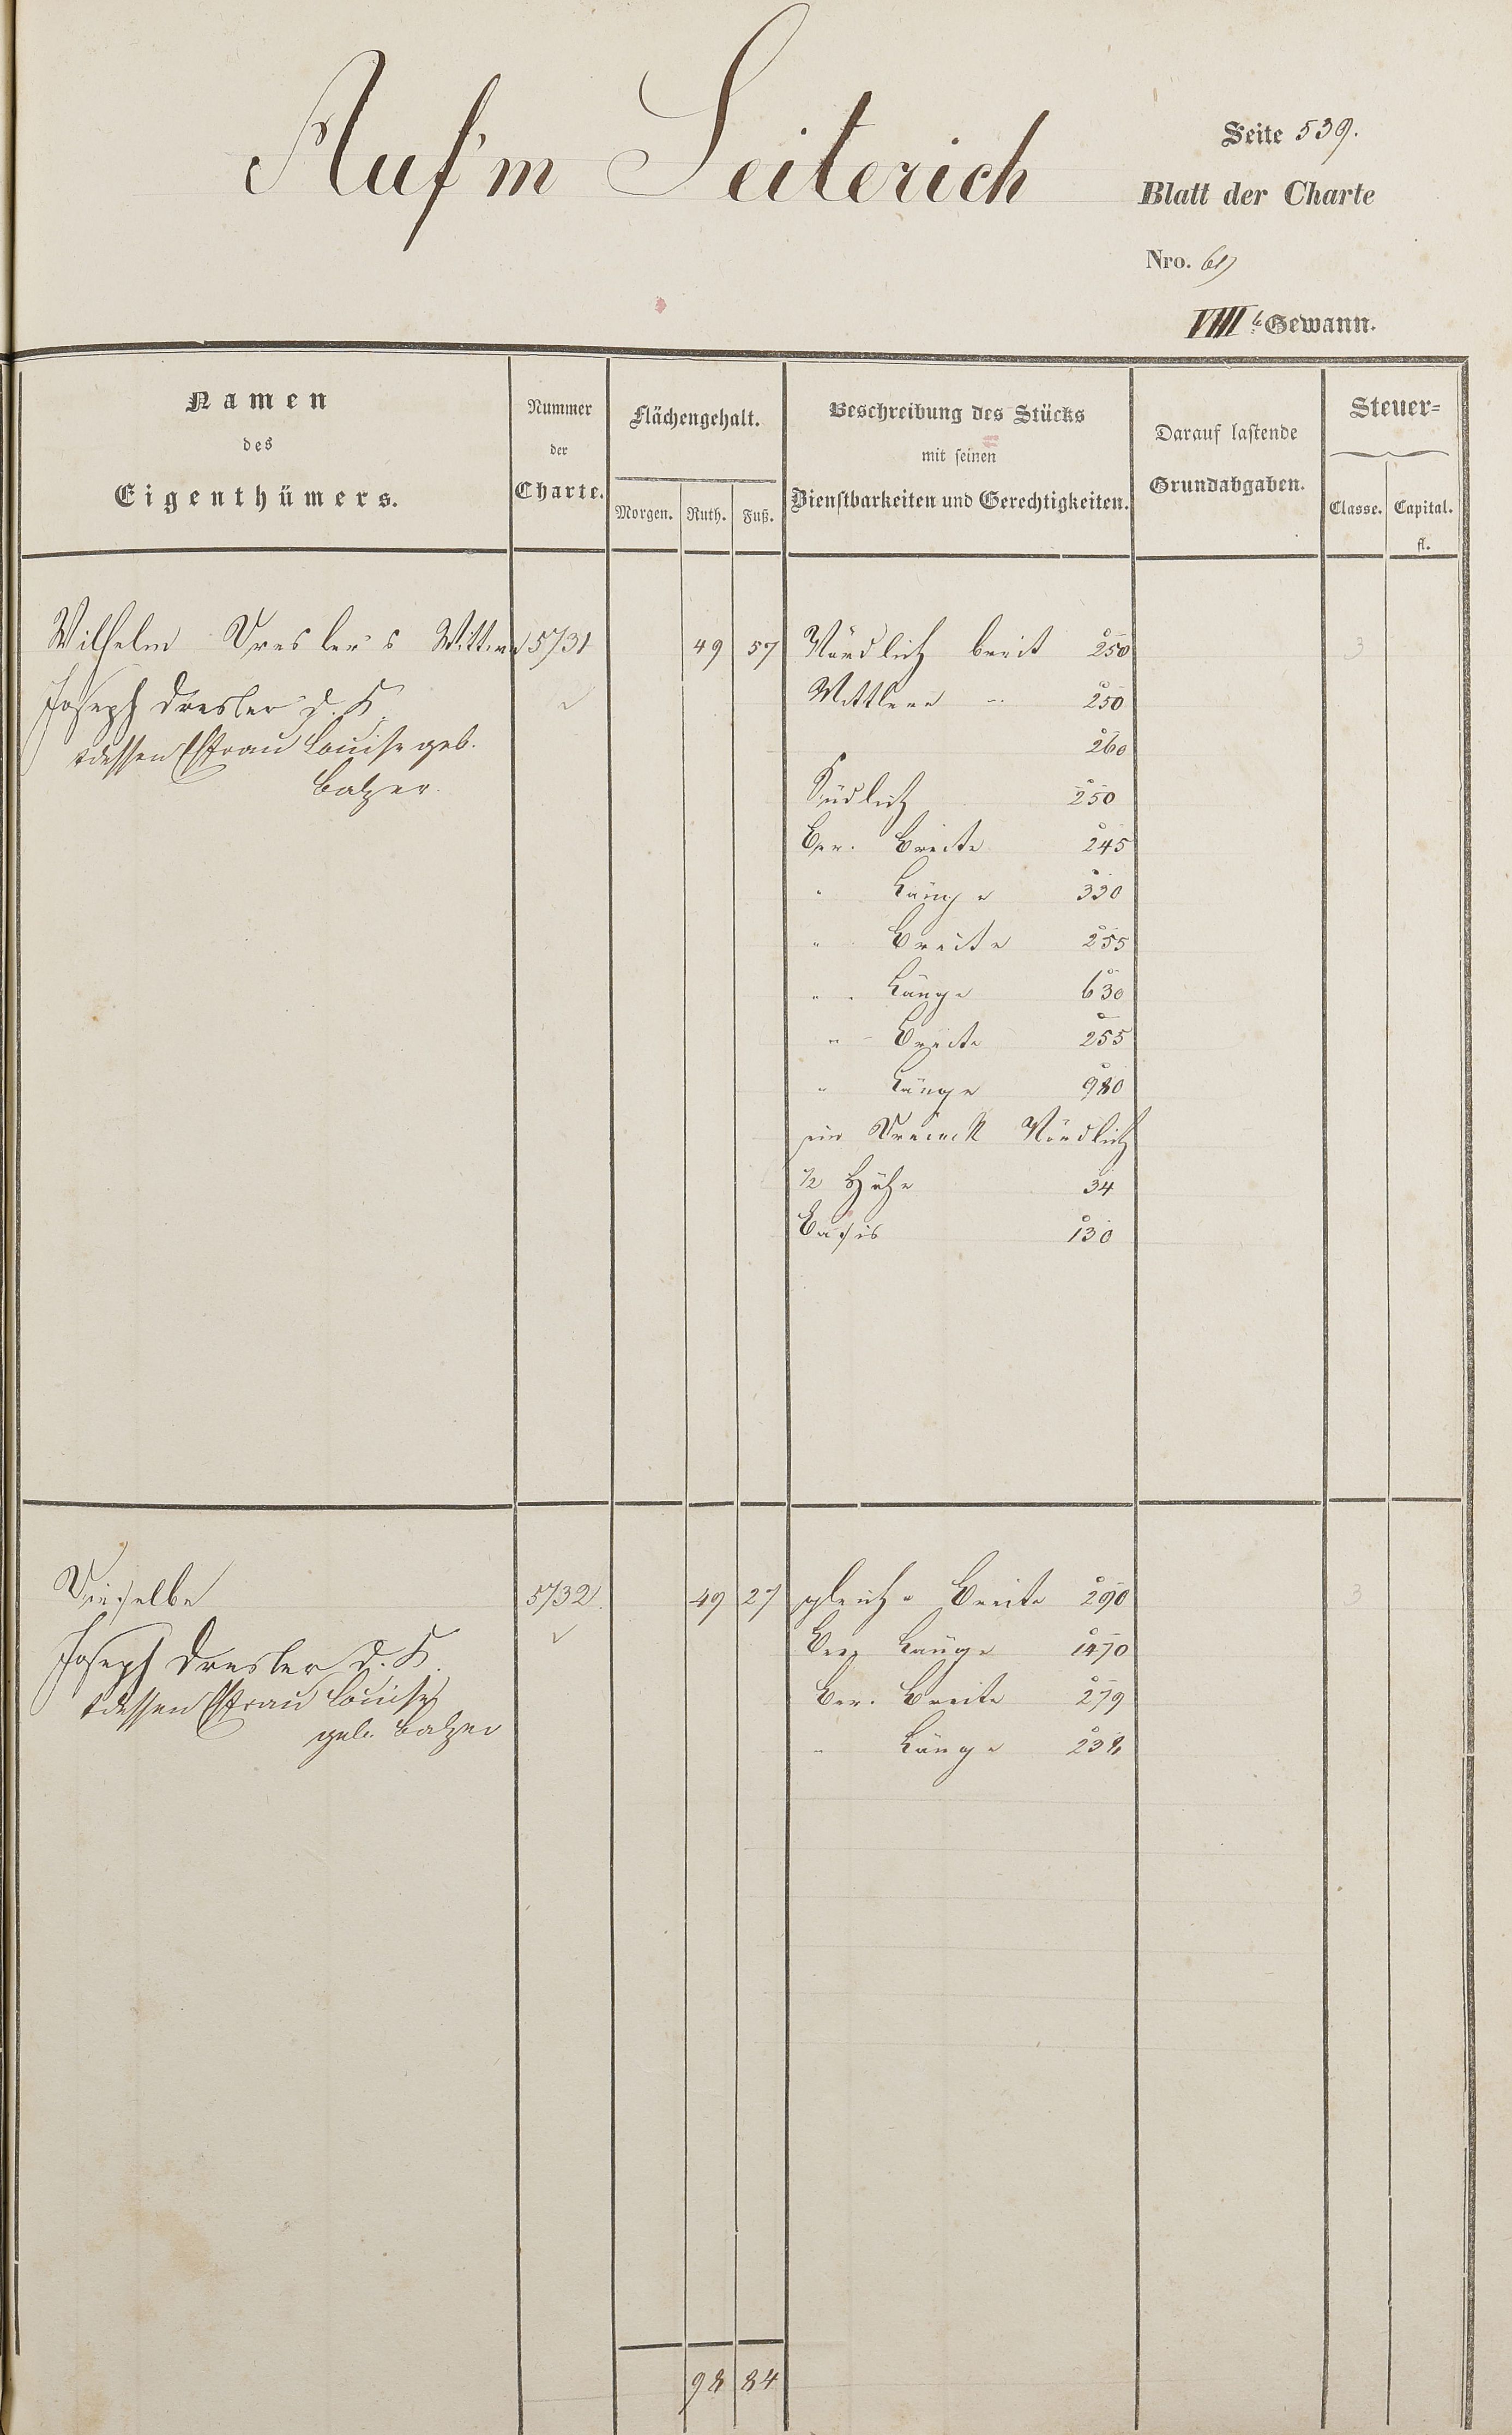 Auf'm Seiterich
Seite 539.
Blatt der Charte
Nro. 61
VIIIte Gewann.
Namen
des
Eigenthümers.
Nummer
der
Charte.
Flächengehalt.
Morgen. Ruth. Fuß.
Beschreibung des Stücks
mit seinen
Dienstbarkeiten und Gerechtigkeiten.
Darauf lastende
Grundabgaben.
Steuer-
Classe. Capital.
fl.
Wilhelm Dresler's Wittwe 5731 49 57 Nördlich breit 250 3
Joseph Dresler d. K. Mittlere " 250
& dessen Efrau Louise geb. 260
Balzer.
Südlich 250
Ber. Breite 245
" Länge 330
" Breite 255
" Länge 630
" Breite 255
" Länge 980
ein Dreieck Nördlich
1/2 Höhe 34
Basis 130
Dieselbe 5732 49 27 gleiche Breite 290 3
Joseph Dresler d. K. Ber. Länge 1470
& dessen Efrau Louise Ber. Breite 279
geb. Balzer
" Länge 238
98 84